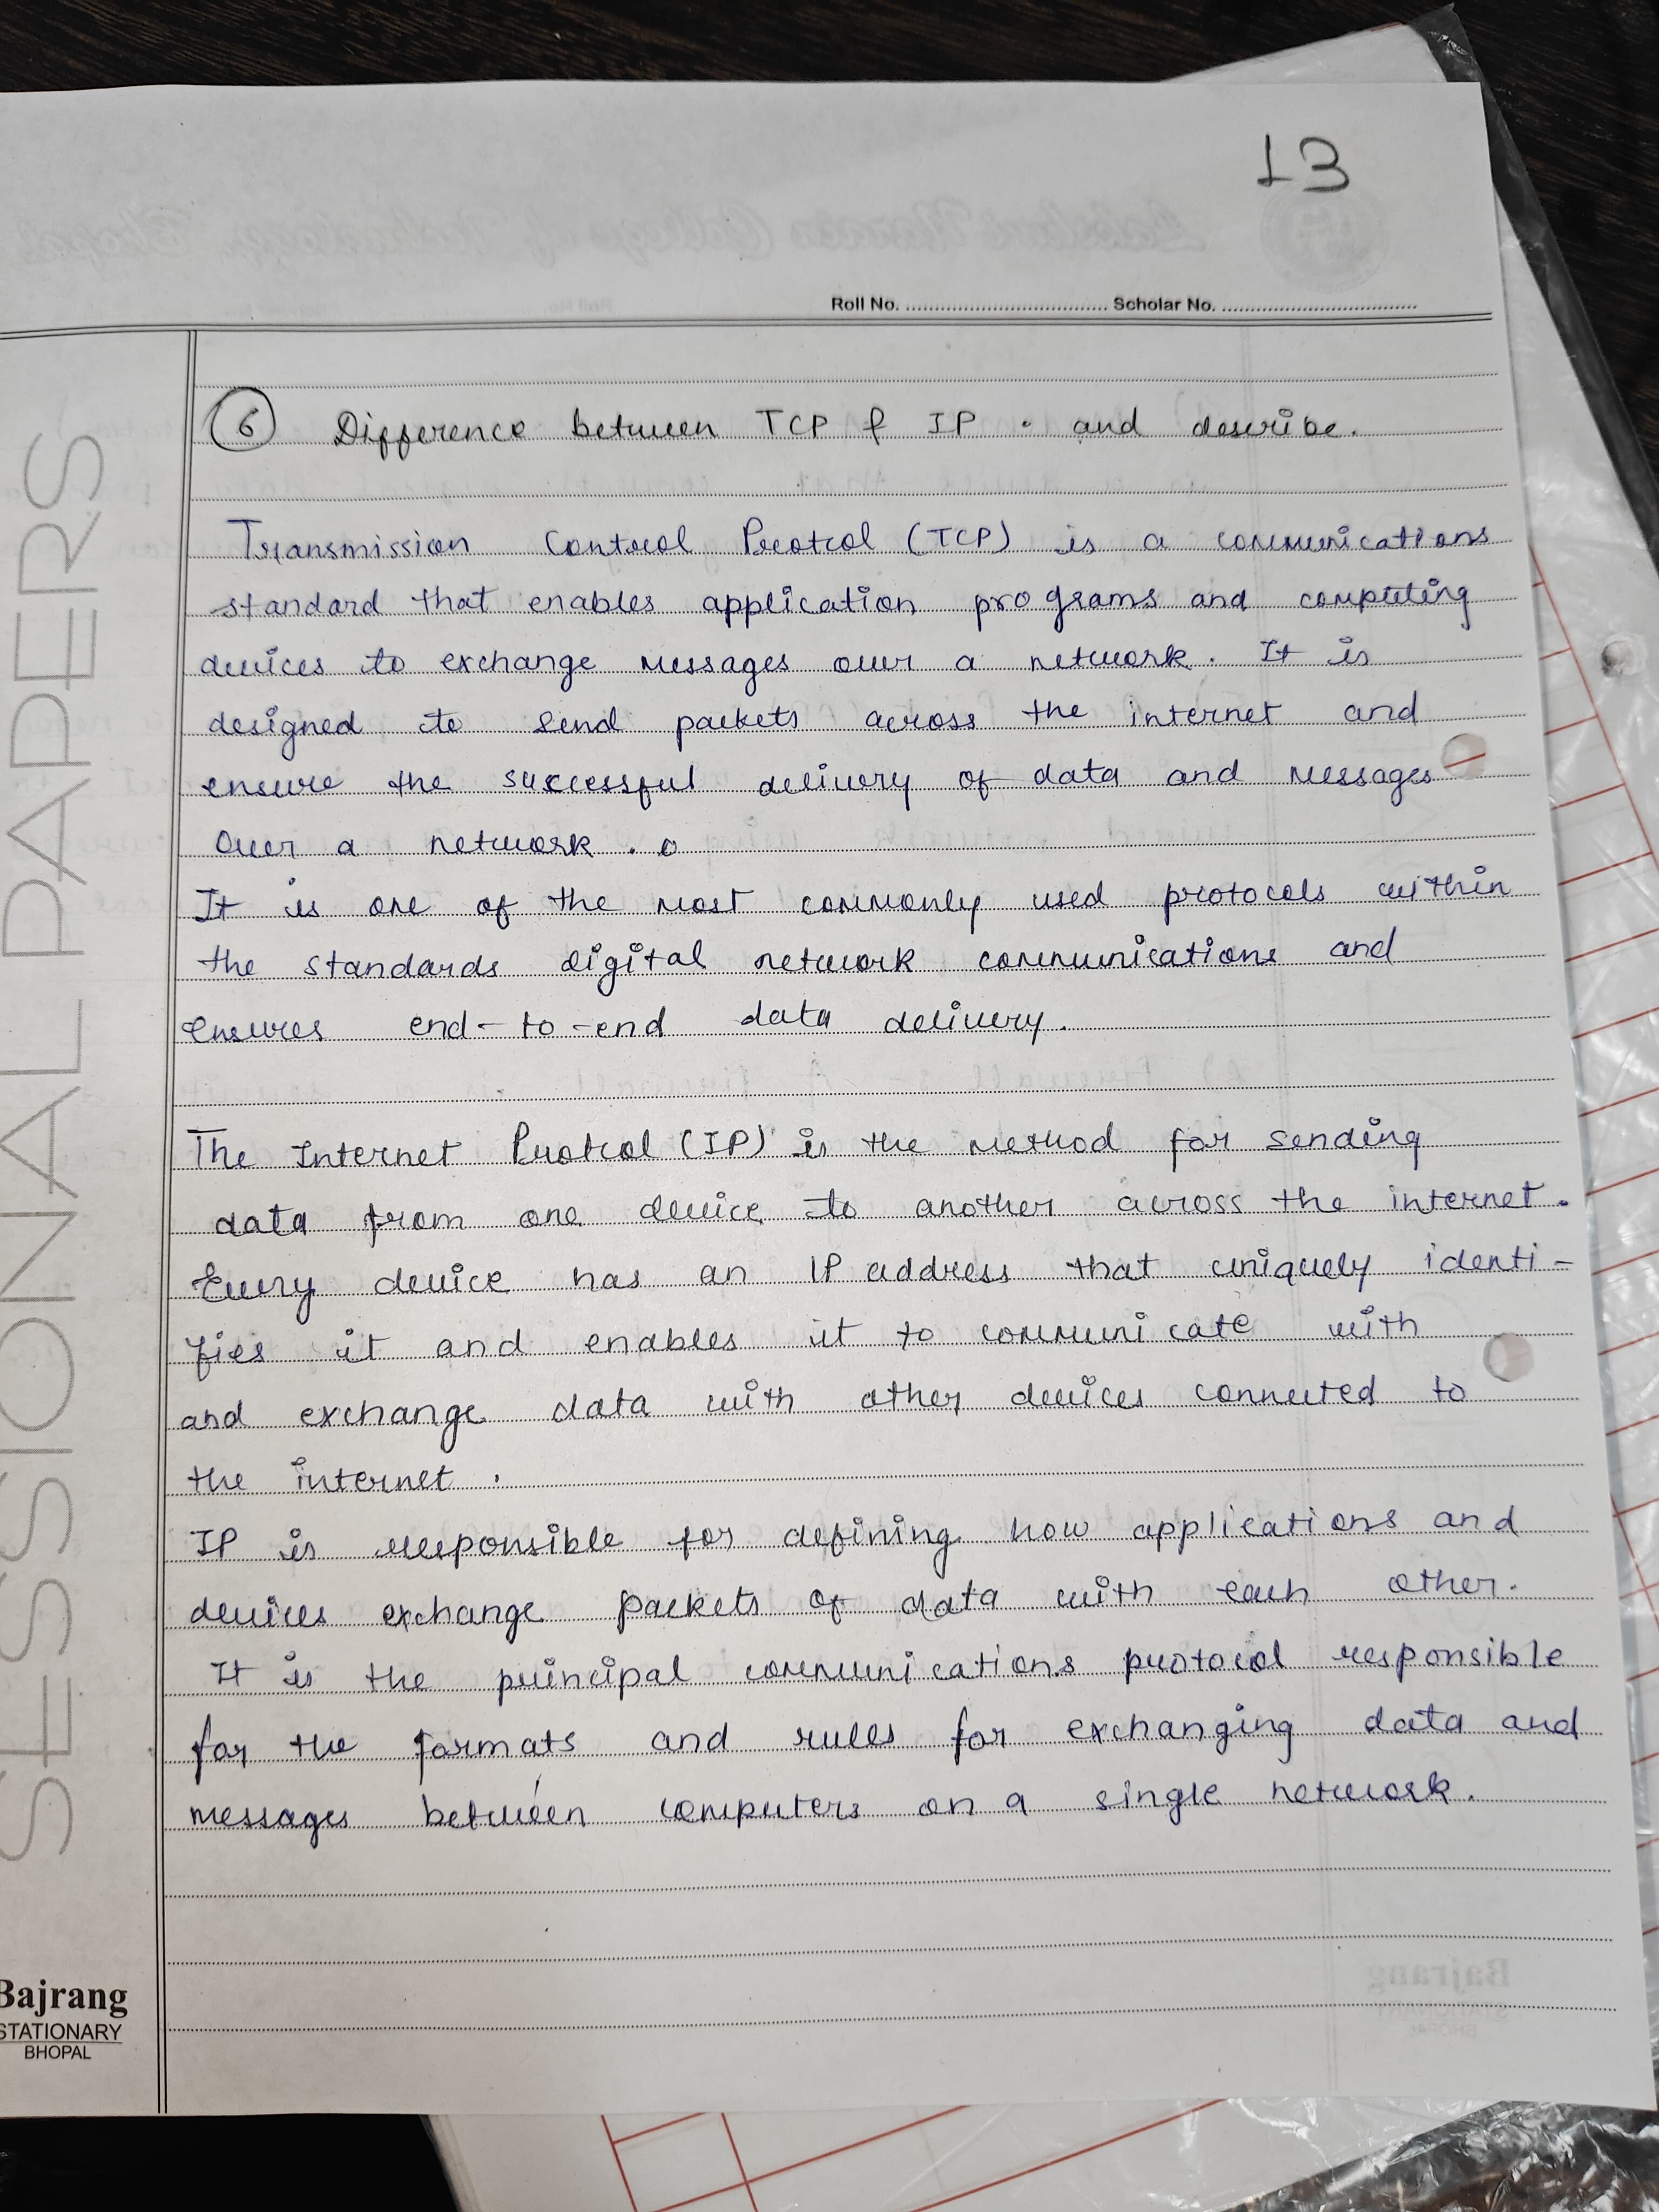 13
Roll No. .................................. Scholar No. ..................................
SESSIONAL PAPERS
6 Difference between TCP & IP . and describe.
Transmission Control Protcol (TCP) is a communications
standard that enables application programs and computing
devices to exchange messages over a network. It is
designed to send packets across the internet and
ensure the successful delivery of data and messages
over a network .
It is one of the most commonly used protocols within
the standards digital network communications and
ensures end-to-end data delivery.
The Internet Protcol (IP) is the method for sending
data from one device to another across the internet.
Every device has an IP address that uniquely identi-
fies it and enables it to communicate with
and exchange data with other devices connected to
the internet .
IP is responsible for defining how applications and
devices exchange packets of data with each other.
It is the principal communications protocol responsible
for the formats and rules for exchanging data and
messages between computers on a single network.
Bajrang
STATIONARY
BHOPAL